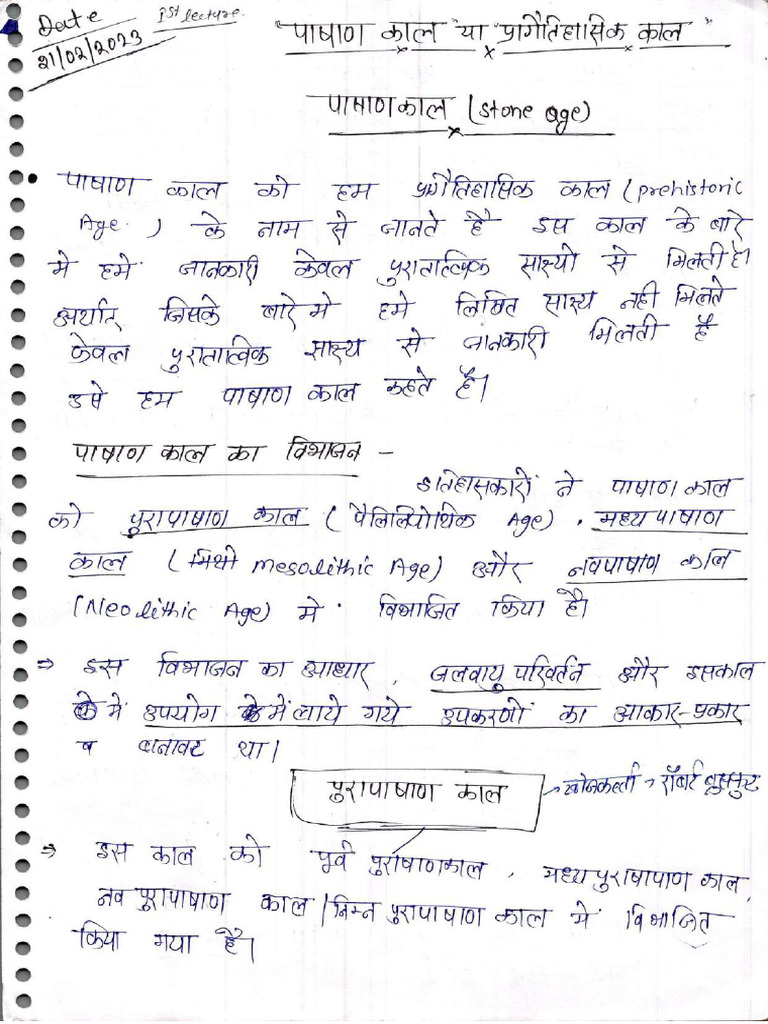 Date
21/02/2023
1st lecture.
"पाषाण काल" या "प्रागैतिहासिक काल"
पाषाणकाल (Stone age)
• पाषाण काल को हम प्रागैतिहासिक काल (prehistoric
Age) के नाम से जानते है इस काल के बारे
मे हमे जानकारी केवल पुरातात्विक साक्ष्यो से मिलती है।
अर्थात् जिसके बारे मे हमे लिखित साक्ष्य नही मिलते
केवल पुरातात्विक साक्ष्य से जानकारी मिलती है
उसे हम पाषाण काल कहते है।
पाषाण काल का विभाजन –
इतिहासकारों ने पाषाण काल
को पुरापाषाण काल (पैलिलियोथिक Age), मध्य पाषाण
काल (मिथो Mesolithic Age) और नवपाषाण काल
(Neolithic Age) मे विभाजित किया है।
⇒ इस विभाजन का आधार, जलवायु परिवर्तन और इसकाल
में उपयोग में लाये गये उपकरणों का आकार-प्रकार
व बनावट था।
पुरापाषाण काल → खोजकर्त्ता → रॉबर्ट ब्रुसफुट
⇒ इस काल को पूर्व पुराषाणकाल, मध्य पुराषापाण काल,
नव पुरापाषाण काल / निम्न पुरापाषाण काल में विभाजित
किया गया है।